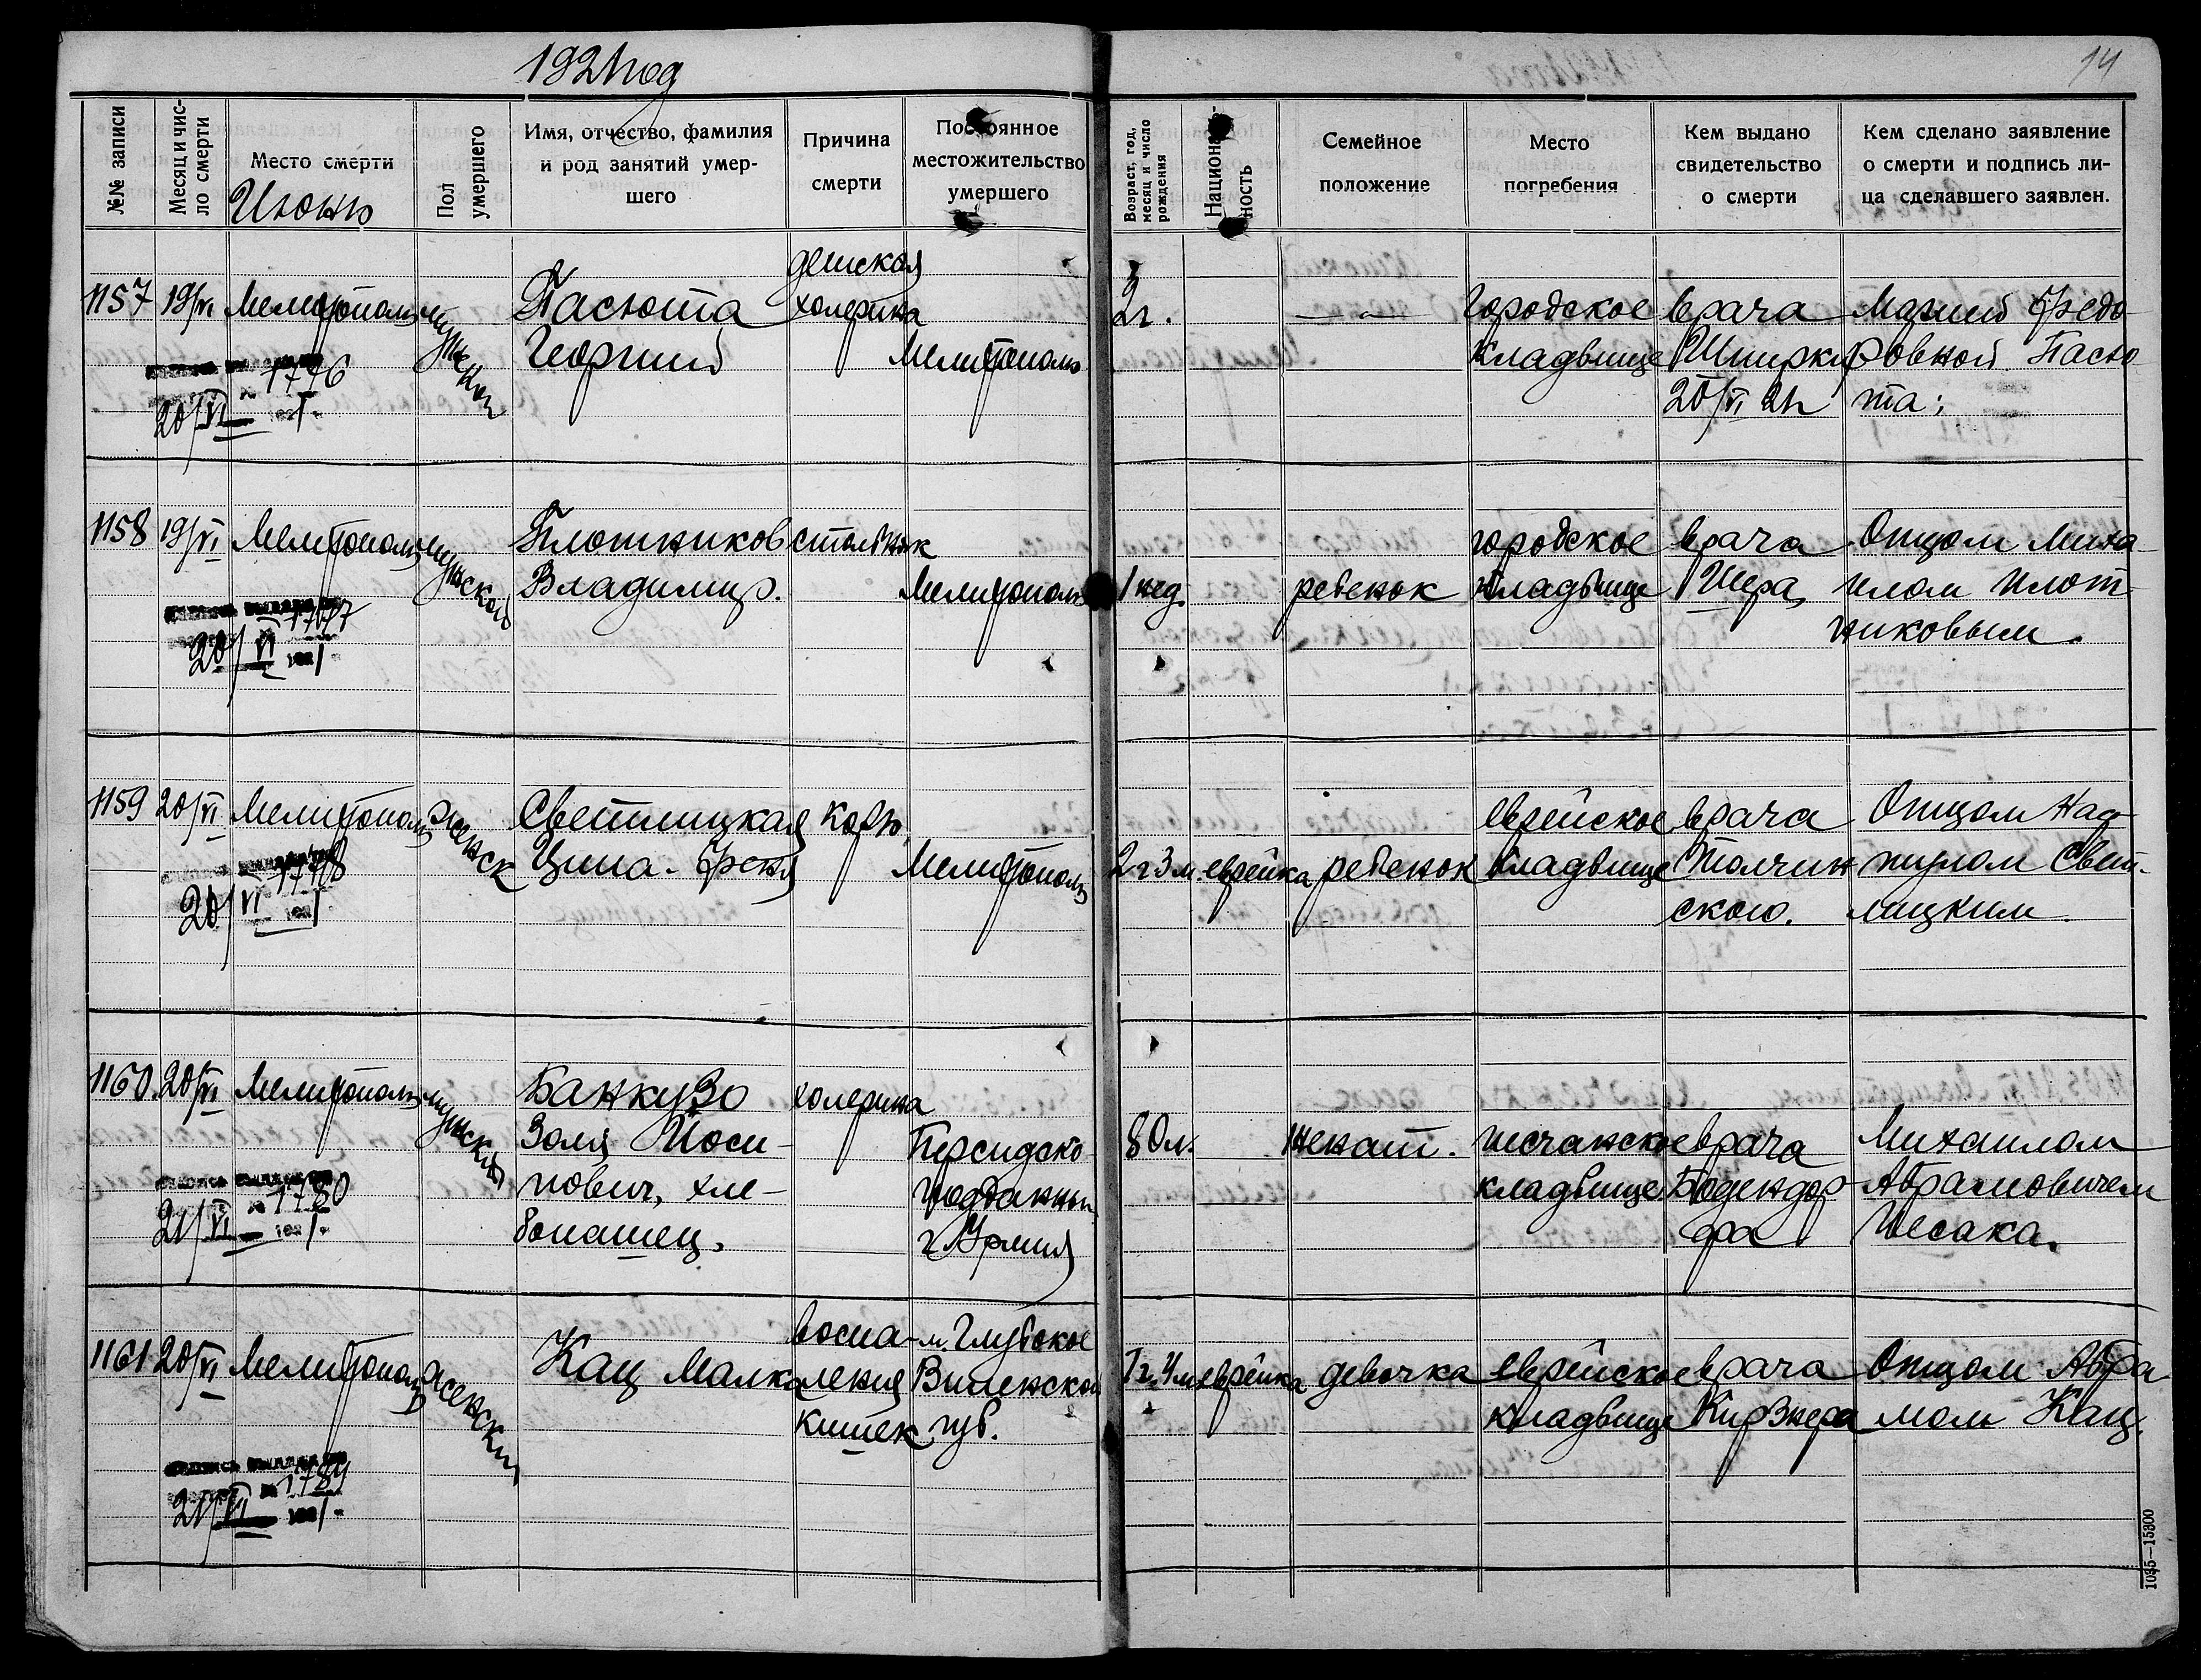 1921 год
14
№№ записи
Месяц и чис-
ло смерти
Место смерти
Июнь
Пол
умершего
Имя, отчество, фамилия
и род занятий умер-
шего
Причина
смерти
Постоянное
местожительство
умершего
Возраст, год,
месяц и число
рождения
Националь-
ность
Семейное
положение
Место
погребения
Кем выдано
свидетельство
о смерти
Кем сделано заявление
о смерти и подпись ли-
ца сделавшего заявлен.
1157
19/VI
Мелитополь
1776
20/VI 1921
мужской
Пасюта
Георгий
детская
холерина
Мелитополь
2г.
— „ —
городское
кладбище
врача
Шпирки
20/VI 21г
Марией Федо
ровной Пасю
та;
1158
19/VI
Мелитополь
1777
20/VI 1921
мужской
Плотников
Владимир.
столбняк
Мелитополь
1 нед.
ребенок
городское
кладбище
врача
Шера
Отцом Миха
илом Плот
никовым.
1159
20/VI
Мелитополь
1778
20/VI 1921
женск
Светлицкая
Ципа-Фейя
корь
Мелитополь
2г3м.
еврейка
ребенок
еврейское
кладбище
врача
Толчин
ского.
Отцом Нас
Свет-
лицким
1160.
20/VI
Мелитополь
1780
21/VI 1921
мужской
Банкузо
Золя Иоси-
пович, хле-
бопашец.
холерина
Персидско
подданный
г Урмия
80л.
женат.
песчанское
кладбище
врача
Бодендор
фа
Михаилом
Абрамовичем
Исака.
1161
20/VI
Мелитополь
1781
21/VI 1921
женский
Кац Малка
воспа-
ления
кишек
м. Глубокое
Виленской
губ.
1г.4м
еврейка
девочка
еврейское
кладбище
врача
Кирзнера
Отцом Абра
мом Кац.
1035—15300